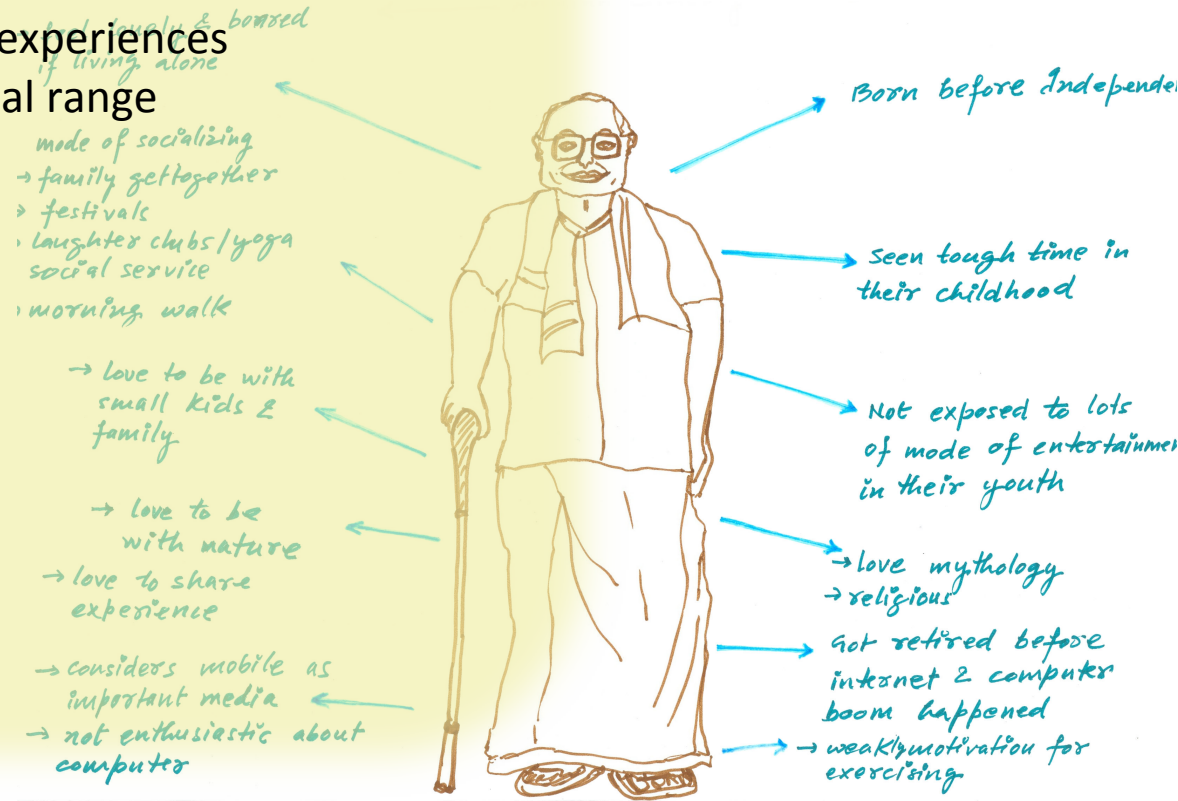 experiences
al range
lonely & boared
if living alone
mode of socializing
→ family gettogether
→ festivals
laughter clubs/yoga
social service
morning walk
→ love to be with
small kids &
family
→ love to be
with nature
→ love to share
experience
→ considers mobile as
important media
→ not enthusiastic about
computer
Born before Independen
Seen tough time in
their childhood
Not exposed to lots
of mode of entertainmen
in their youth
→ love mythology
→ religious
Got retired before
internet & computer
boom happened
→ weakly motivation for
exercising